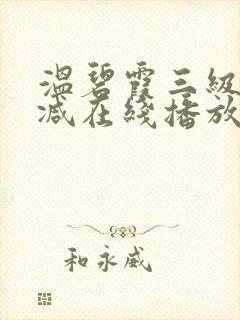 温碧霞三級
减在綫播放
和永威